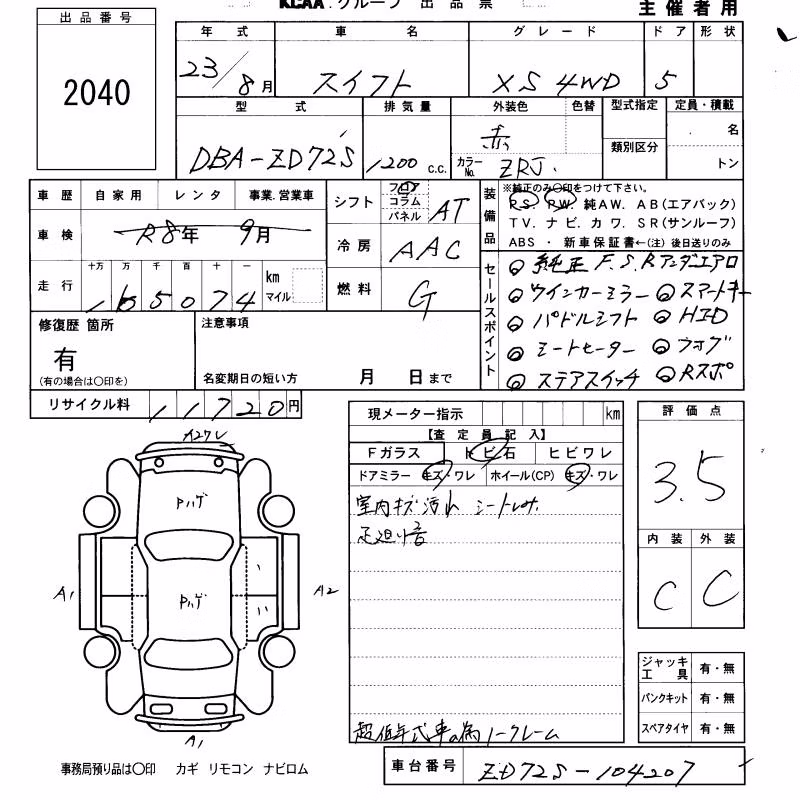 KCAA.グループ 出品票
主催者用
出品番号
2040
年式 車名 グレード ドア 形状
23/8月 スイフト XS 4WD 5
型式 排気量 外装色 色替 型式指定 定員・積載
DBA-ZD72S 1200 c.c. 赤 カラーNo. ZRJ 類別区分 名
トン
車歴 自家用 レンタ 事業.営業車
車検 R8年 9月
走行 十万 万 千 百 十 一
165074 km マイル
シフト フロア コラム パネル AT
冷房 AAC
燃料 G
装備品
※純正のみ〇印をつけて下さい。
P.S. P.W. 純AW. AB(エアバック)
TV. ナビ. カワ. SR(サンルーフ)
ABS ・ 新車保証書←(注) 後日送りのみ
セールスポイント
◎ 純正F.S.Rアンダエアロ
◎ ウインカーミラー ◎ スマートキー
◎ パドルシフト ◎ HID
◎ シートヒーター ◎ フォグ
◎ ステアスイッチ ◎ Rスポ
修復歴 箇所
有
(有の場合は〇印を)
注意事項
名変期日の短い方 月 日まで
リサイクル料 11720円
現メーター指示 km
【査定員記入】
Fガラス トビ石 ヒビワレ
ドアミラー キズ・ワレ ホイール(CP) キズ・ワレ
室内キズ汚れ シート
足廻り音
超低年式車の為ノークレーム
評価点
3.5
内装 外装
C C
ジャッキ工具 有・無
パンクキット 有・無
スペアタイヤ 有・無
車台番号 ZD72S-104207
A2ワレ
Pハゲ
Pハゲ
A1
A2
A1
事務局預り品は〇印 カギ リモコン ナビロム